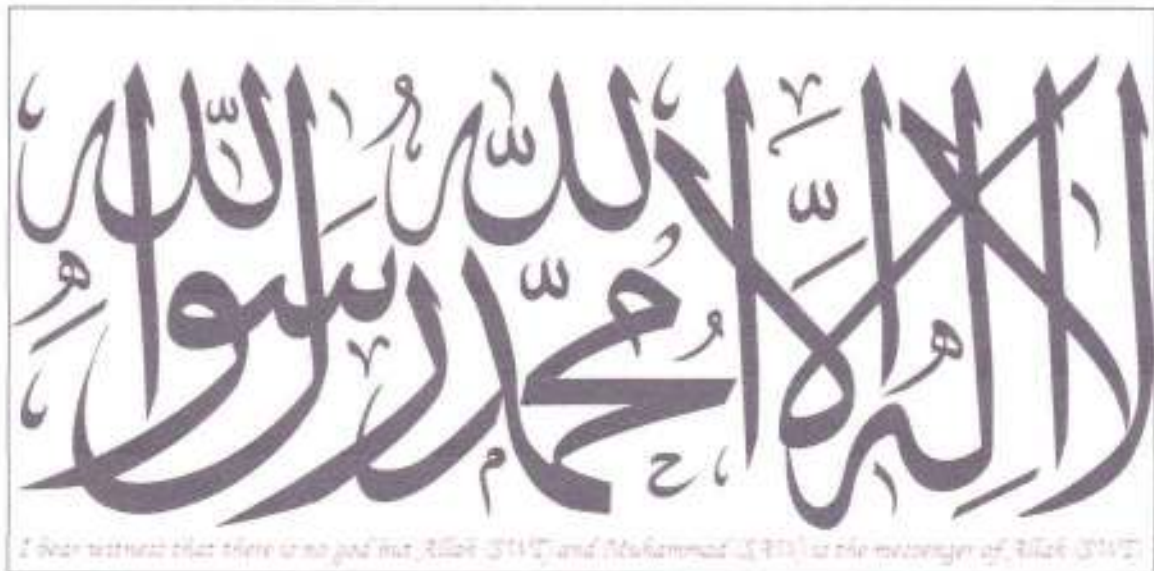 لا إله إلا الله محمد رسول الله
I bear witness that there is no god but Allah (SWT) and Muhammad (SAW) is the messenger of Allah (SWT)